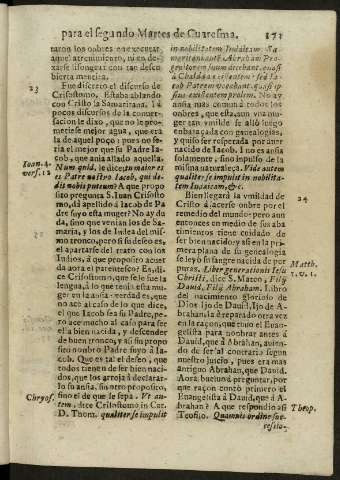 para el segundo Martes de Cuaresma. 171
taron los onbres que executar
aquel atrevimiento, ni en de-
xarse lisongear con tan descu-
bierta mentira.
23
Fue discreto el discurso de
Crisostomo. Estaba ablando
con Cristo la Samaritana. I à
pocos discursos de la conver-
sacion le dixo, que no le pro-
metiese mejor agua, que era
la de aquel poço; pues no se-
ria el mejor que su Padre Ia-
cob, que ania allado aquella.
Ioan. 4.
vers. 12
Num quid, le dice, tu maior es
es Patre nostro Iacob, qui de-
dit nobis puteum? A que propo
sito pregunta S. Iuan Crisosto
mo, dà apellido à Iacob de Pa
dre suyo esta muger? No ay du
da, sino que venian los de Sa-
maria, y los de Iudea del mismo
tronco, pero si se desto es,
el apartarse del trato con los
Indios. A que proposito acuer
da aora el parentesco? Es, di-
ce Crisostomo, que se le fue la
lengua, à lo que tenia esta mu
ger en la ansia · verdad es, que
no ace al caso de lo que dice,
el que Iacob sea su Padre, pe-
ro ace mucho al caso para ser
ella bien nacida, y descender
de buen tronco, y asi sin propo
sito nonbrò Padre suyo à Ia-
cob. Que es tal el deseo, que
todos tienen de ser bien naci-
dos, que los arroja à declarar-
lo su ansia, sin otro proposito,
sino el de que se sepa. Vt au-
Chrysos.
tem, dice Crisostomo in Cat.
D. Thom. qualiter se impulit
in nobilitatem Iudaicam. Sa-
maritani autè Abraham Pro-
genitorem suum docebant, quasi
à Chaldæa existentem: sed Ia-
cob Patrem vocabant, quasi ip-
sius existentem prolem. No ay
ansia mas comun à todos los
onbres, que esta, aun vna mu-
ger tan vmilde se allò luego
enbaraçada con genealogias,
y quiso ser respetada por aver
nacido de Iacob. I no es ansia
solamente, sino inpulso de la
misma naturaleza. Vide autem
qualiter se impulit in nobilita-
tem Iudaicam, &c.
24
Bien llegarà la vmildad de
Cristo à acerse onbre por el
remedio del mundo: pero aun
entonces en medio de sus aba
timientos tiene cuidado de
ser bien nacido y asi en la pri
mera plana de su genealogia
se leyò su sangre nacida de po-
Matth.
1. v. 1.
tetados. Liber generationis Iesu
Christi, dice S. Mateo, Filij
Dauid, Filij Abraham. Libro
del nacimiento glorioso de
Dios Ijo de Dauid, Ijo de A-
brahan, i à reparado otra vez
en la raçon, que tuvo el Euan-
gelista para nonbrar antes à
Dauid, que à Abrahan, avien-
do de ser al contrario segun
nuestro juicio, pues era mas
antiguo Abrahan, que Dauid.
Aora buelvo à preguntar, por
que raçon contò primero el
Euangelista à Dauid, que à A-
brahan? A que respondiò asi
Theop.
Teofilo. Quamuis ordine suc-
cessio-